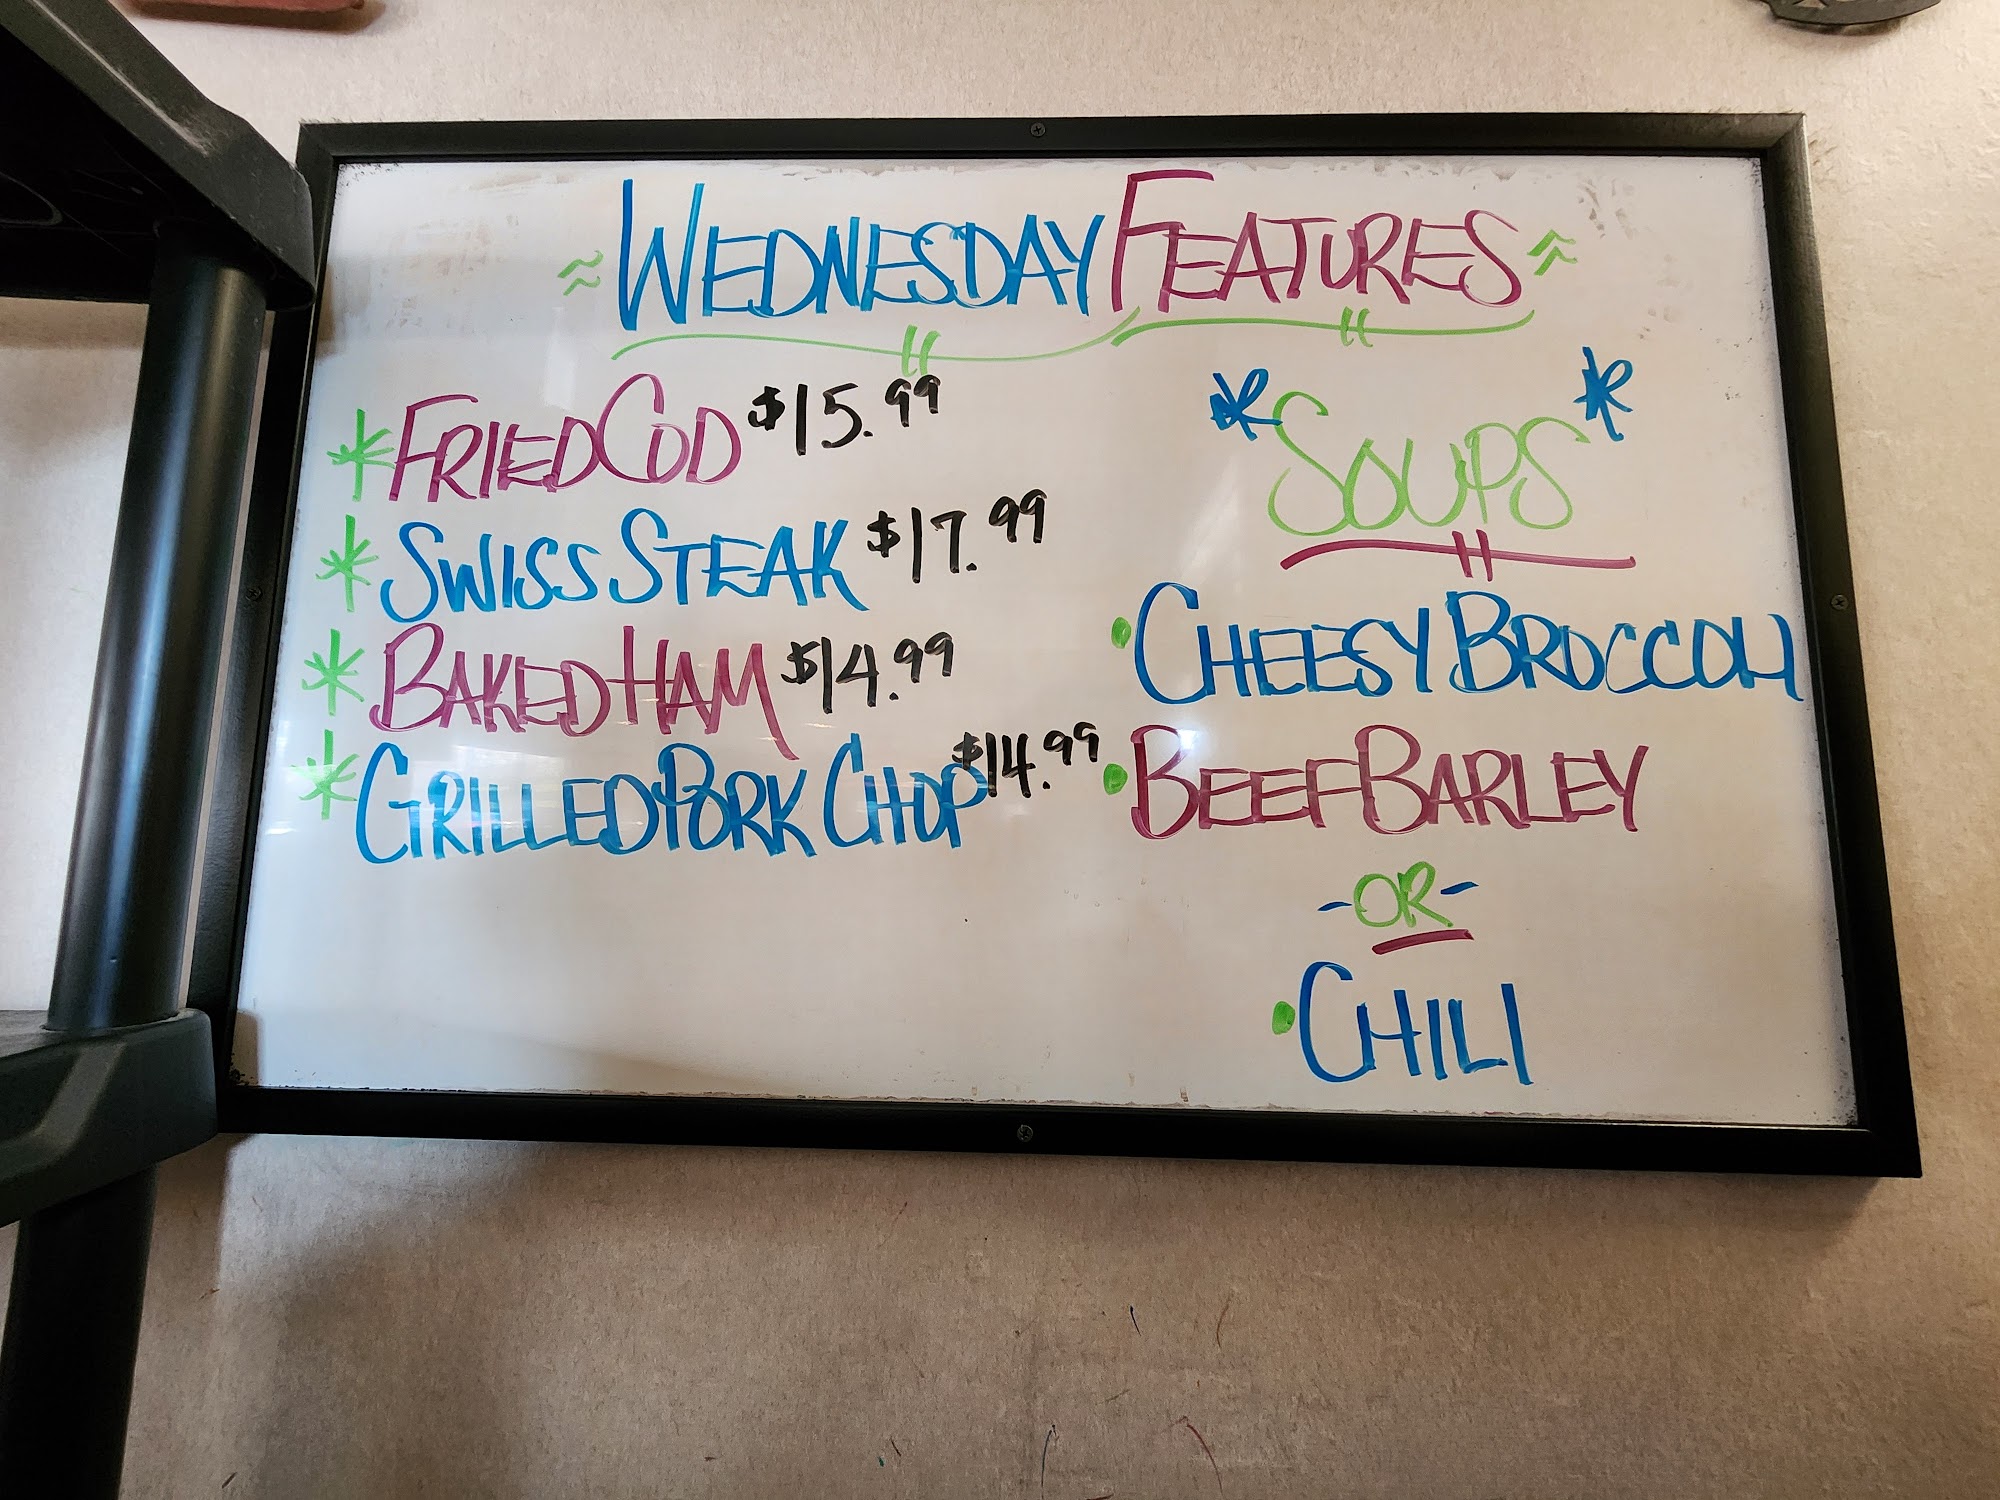 WEDNESDAY FEATURES
FRIED COD $15.99
SWISS STEAK $17.99
BAKED HAM $14.99
GRILLED PORK CHOP $14.99
SOUPS
CHEESY BROCCOLI
BEEF BARLEY
-OR-
CHILI